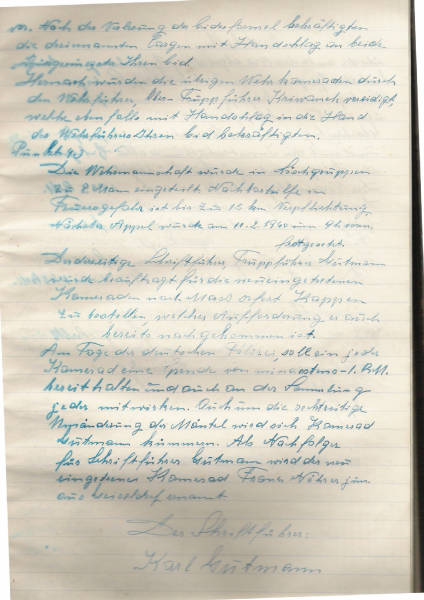 vor. Nach der Verlesung der Eidesformel bekräftigten
die dreinannten Chargen mit Handschlag an beide
ihren Eid.
Hernach wurden die übrigen Wehrkameraden durch
den Wehrführer, Truppführer vereidigt,
welche ebenfalls mit Handschlag in die Hand
des Wehrführers Ihren Eid bekräftigten.
Punkt
Die Wehrmannschaft wurde in Löschgruppen
zu 8 Mann eingeteilt. Nachbarhilfe in
Feuersgefahr ist bis zu 15 km Verpflichtung.
Nächster Appel wurde am 11.2.1940 um 9h vorm.
festgesetzt.
Schriftführer Truppführer Gutmann
wurde beauftragt für die neueingetretenen
Kameraden nach Mass sofort Kappen
zu bestellen, welcher Aufforderung er auch
bereits nachgekommen ist.
Am Tage der deutschen Polizei, soll ein jeder
Kamerad eine Spende von mindestens 1. R.M.
bereit halten und auch an der Sammlung
jeder mitwirken. Auch um die rechtzeitige
der Mäntel wird sich Kamerad
Gutmann kümmern. Als Nachfolger
für Schriftführer Gutmann wird der neu
Kamerad Franz jun.
aus ernannt
Der Schriftführer:
Karl Gutmann